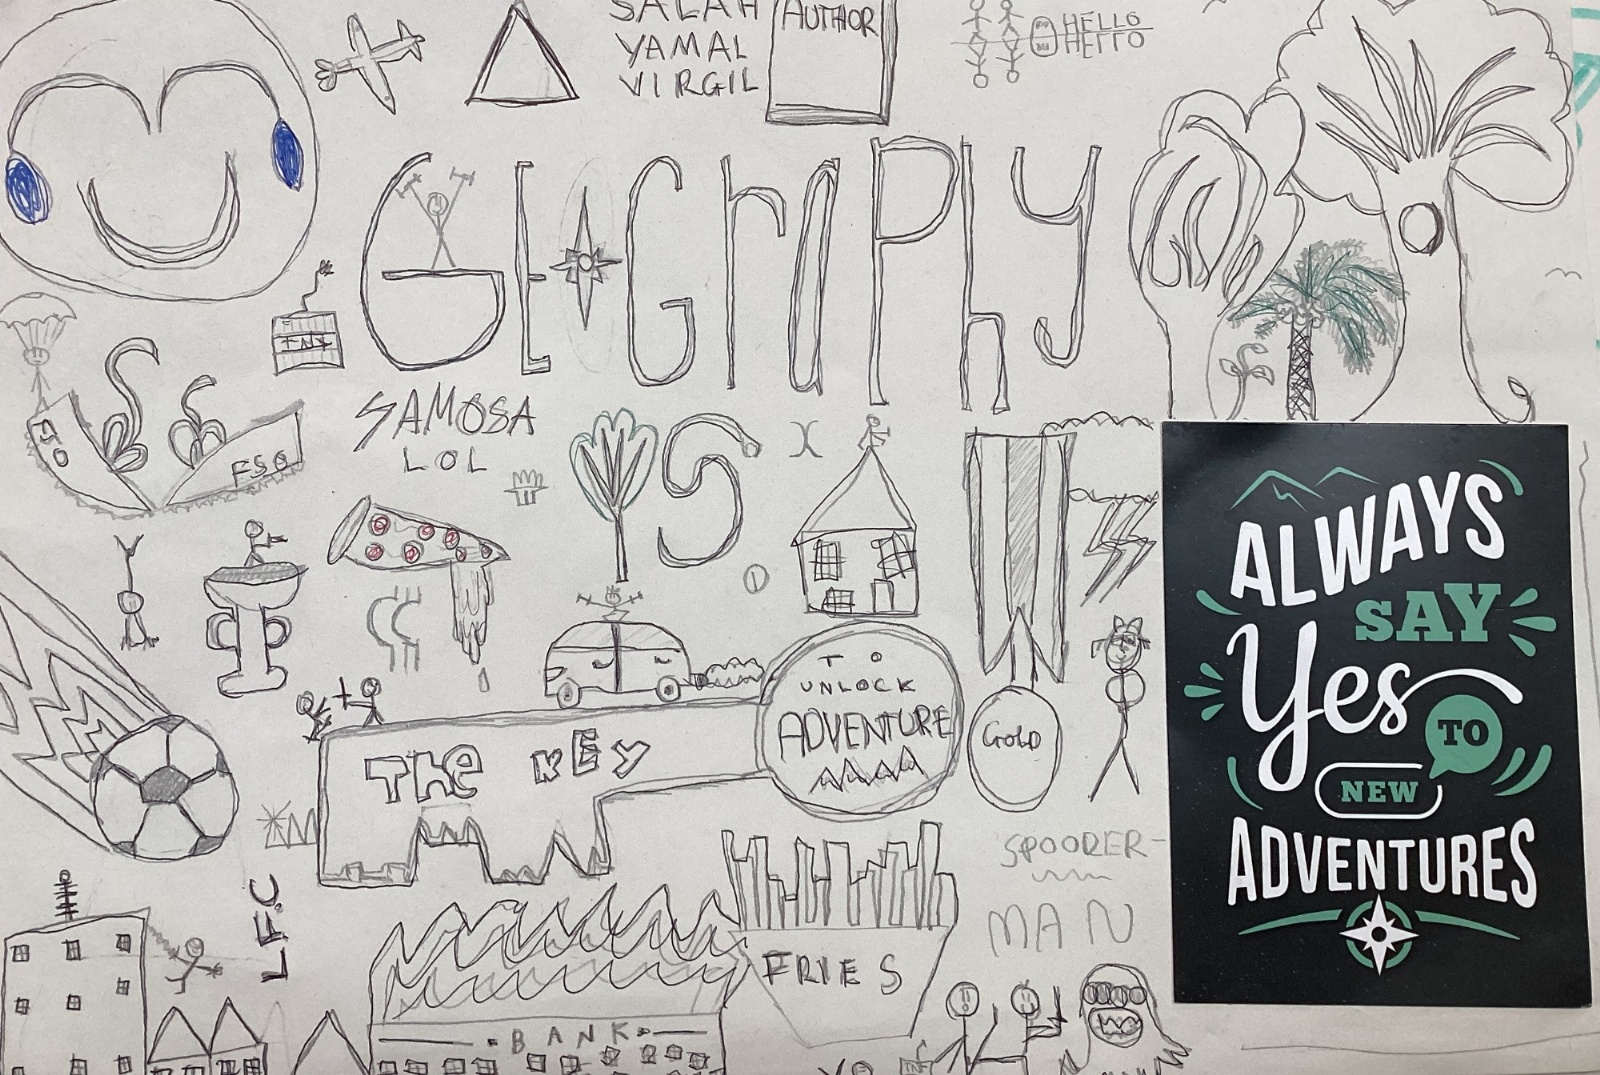 SALAH
YAMAL
VIRGIL
AUTHOR
HELLO
HELLO
GEOGraPhy
TNT
FSG
FSG
SAMOSA
LOL
IS
The KEy
TO
UNLOCK
ADVENTURE
GOLD
L.F.C
SPOODER-
MAN
FRIES
BANK
ALWAYS
SAY
Yes
TO
NEW
ADVENTURES